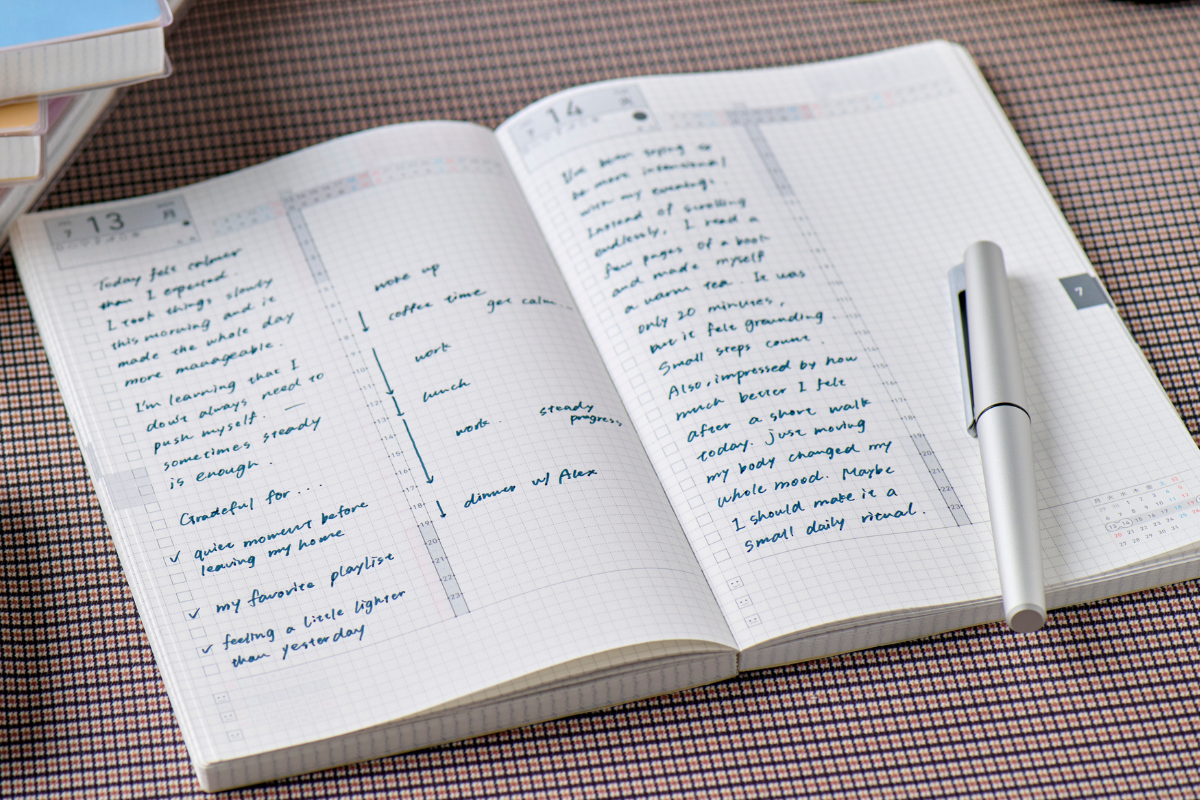 7 13 月
Today felt calmer
than I expected.
I took things slowly
this morning and it
made the whole day
more manageable.
I'm learning that I
don't always need to
push myself. —
sometimes steady
is enough.
Grateful for ....
✓ quiet moment before
leaving my home
✓ my favorite playlist
✓ feeling a little lighter
than yesterday
woke up
coffee time
get calm...
work
lunch
work.
steady
progress
dinner w/ Alex
7 14
I've been trying to
be more intentional
with my evenings.
Instead of scrolling
endlessly, I read a
few pages of a book
and made myself
a warm tea. It was
only 20 minutes,
but it felt grounding.
Small steps count.
Also, impressed by how
much better I felt
after a short walk
today. just moving
my body changed my
whole mood. Maybe
I should make it a
small daily ritual.
7